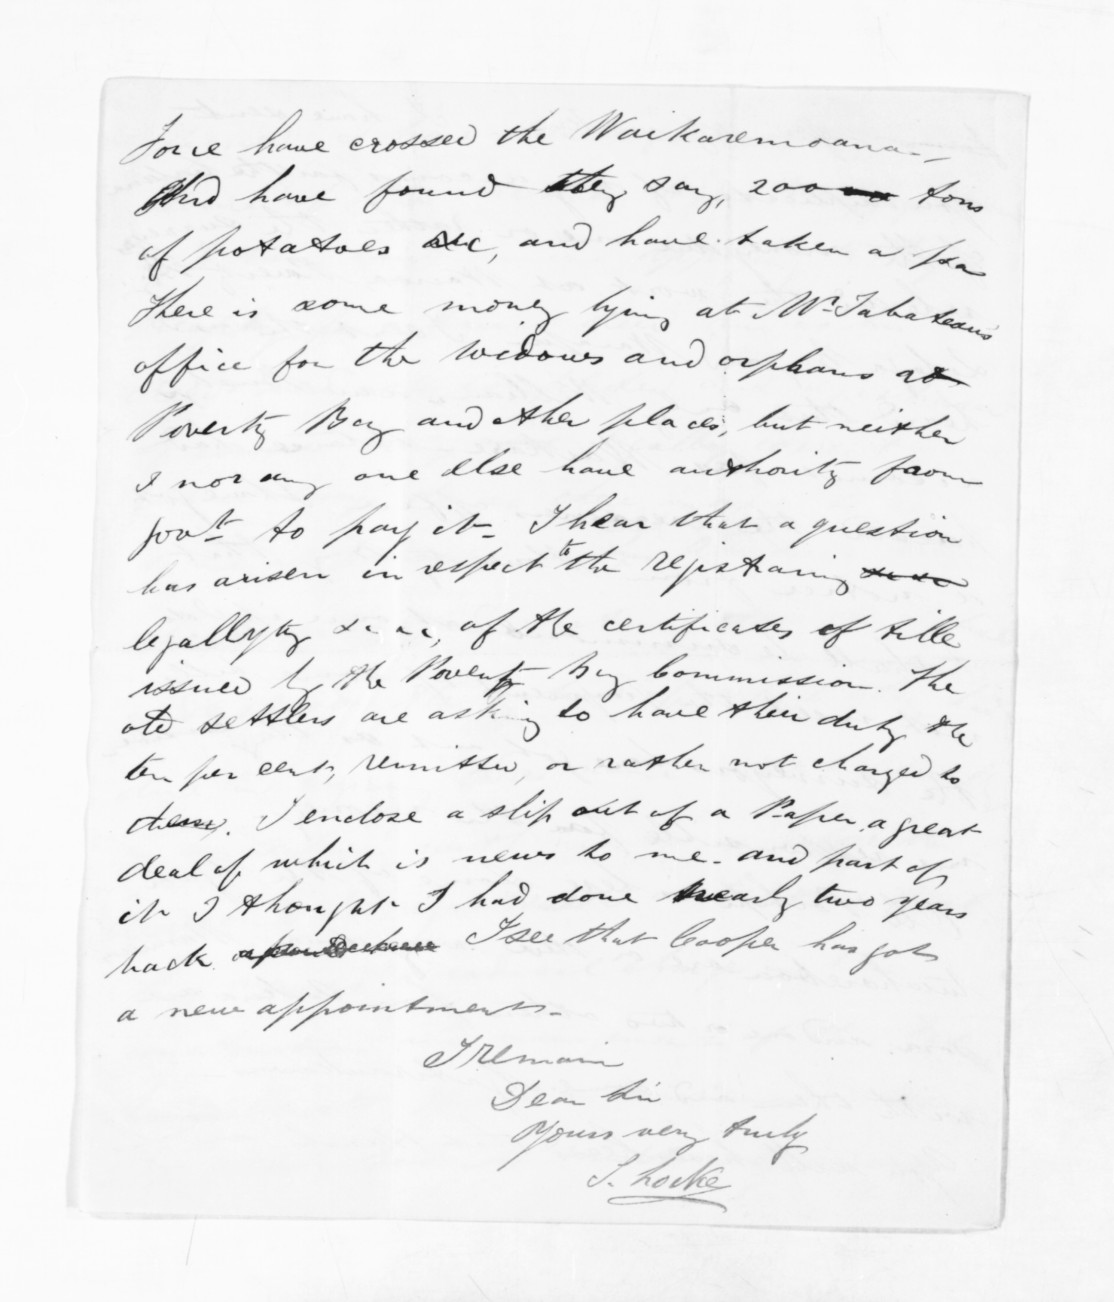 Force have crossed the Waikaremoana -,
And have found they say, 200 tons
of potatoes &c, and have taken a pa
There is some money lying at Mr. Tabateau's
office for the widows and orphans at
Poverty Bay and other places, but neither
I nor any one else have authority from
Govt. to pay it - I hear that a question
has arisen in respect to the registering
legality &c &c, of the certificates of title
issued by the Poverty Bay Commission. The
old settlers are asking to have their duty the
ten per cent, remitted, or rather not charged to
them. I enclose a slip out of a Paper, a great
deal of which is news to me - and part of
it I thought I had done nearly two years
back. I see that Cooper has got
a new appointment -
I remain
Dear Sir
Yours very truly
S. Locke